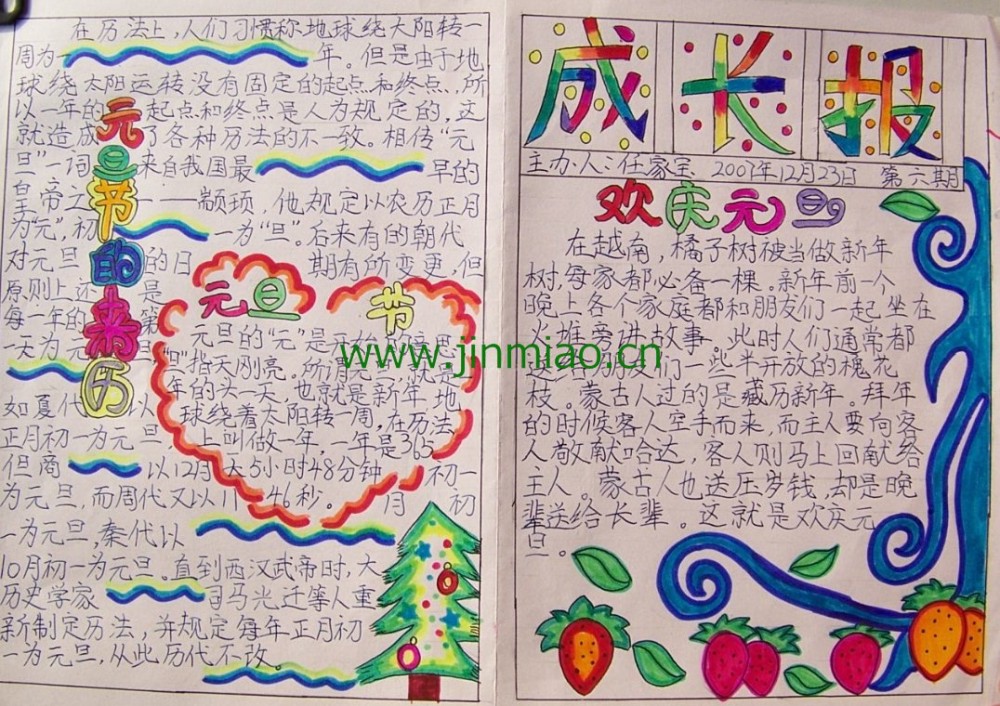 在历法上，人们习惯称地球绕太阳转一
周为一年。但是由于地
球绕太阳运转没有固定的起点和终点，所
以一年的起点和终点是人为规定的，这
就造成了各种历法的不一致。相传“元
旦”一词来自我国最早的
皇帝之一——颛顼，他规定以农历正月
为元，初一为“旦”。后来有的朝代
对元旦的日期有所变更，但
原则上还是
每一年的第
天为元
如夏代以
正月初一为元旦
但商以12月初一
为元旦，而周代又以11月初
一为元旦，秦代以
10月初一为元旦。直到西汉武帝时，大
历史学家司马光迁等人重
新制定历法，并规定每年正月初
一为元旦，从此历代不改。
元旦节的来历
元旦节
元旦的“元”是
旦”指天刚亮，所谓元旦，就是
年的头一天，也就是新年，地
球绕着太阳转一周，在历法
上叫做一年，一年是365
天5小时48分钟
46秒。
成长报
主办人：任家宝 2007年12月23日 第六期
欢庆元旦
在越南，橘子树被当做新年
树，每家都必备一棵。新年前一个
晚上各个家庭都和朋友们一起坐在
火堆旁讲故事，此时人们通常都
们一些半开放的槐花
枝。蒙古人过的是藏历新年。拜年
的时候客人空手而来，而主人要向客
人敬献哈达，客人则马上回献给
主人。蒙古人也送压岁钱，却是晚
辈送给长辈。这就是欢庆元
旦。
www.jinmiao.cn